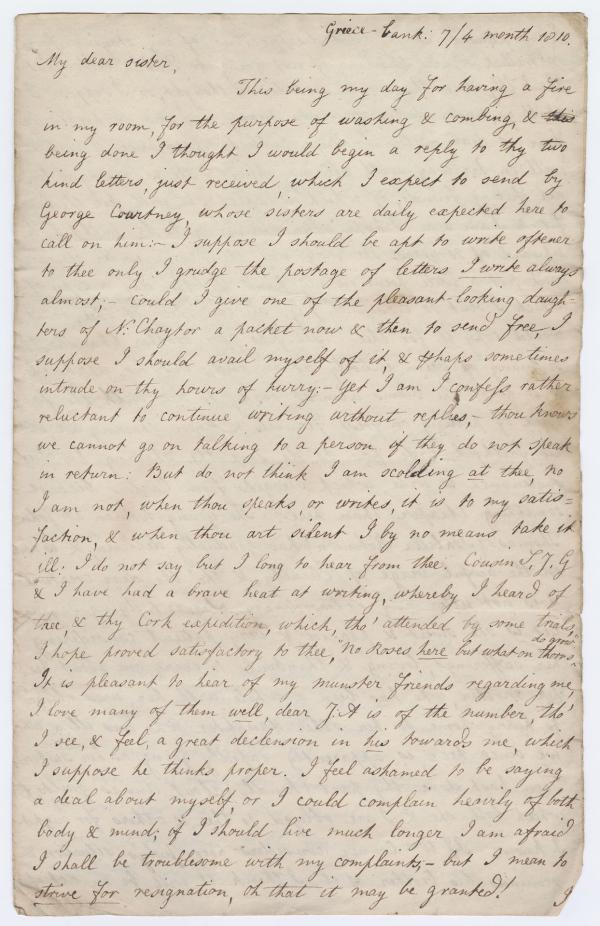 Griece-bank: 7/4 month 1810.
My dear sister,
This being my day for having a fire
in my room, for the purpose of washing & combing, & this
being done I thought I would begin a reply to thy two
kind letters, just received, which I expect to send by
George Courtney, whose sisters are daily expected here to
call on him:- I suppose I should be apt to write oftener
to thee only I grudge the postage of letters I write always
almost;- could I give one of the pleasant-looking daugh-
ters of N: Chaytor a packet now & then to send free, I
suppose I should avail myself of it, & perhaps sometimes
intrude on thy hours of hurry:- Yet I am I confess rather
reluctant to continue writing without replies,- thou knows
we cannot go on talking to a person if they do not speak
in return: But do not think I am scolding at thee, no
I am not, when thou speaks, or writes, it is to my satis=
faction, & when thou art silent I by no means take it
ill: I do not say but I long to hear from thee. Cousin S. J. G
& I have had a brave heat at writing, whereby I heard of
thee, & thy Cork expedition, which, tho' attended by some trials,
I hope proved satisfactory to thee, "No Roses here but what on thorns do grow".
It is pleasant to hear of my munster friends regarding me,
I love many of them well, dear J: A is of the number, tho'
I see, & feel, a great declension in his towards me, which
I suppose he thinks proper. I feel ashamed to be saying
a deal about myself, or I could complain heavily of both
body & mind; if I should live much longer I am afraid
I shall be troublesome with my complaints,- but I mean to
strive for resignation, oh that it may be granted!
I